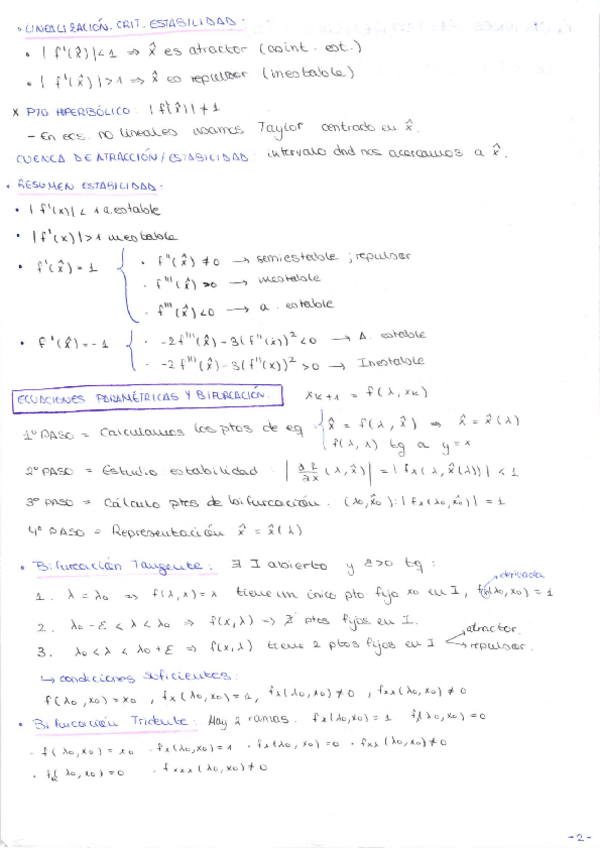 • LINEALIZACIÓN. CRIT. ESTABILIDAD:
• |f'(x̂)|<1 ⇒ x̂ es atractor (asint. est.)
• |f'(x̂)|>1 ⇒ x̂ es repulsor (inestable)
x PTO HIPERBÓLICO: |f'(x̂)| ≠ 1
- En ecs. no lineales usamos Taylor centrado en x̂.
CUENCA DE ATRACCIÓN/ESTABILIDAD: intervalo dnd nos acercamos a x̂.
• RESUMEN ESTABILIDAD:
• |f'(x)| < 1 a.estable
• |f'(x)|>1 inestable
• f'(x̂) = 1 { • f''(x̂) ≠0 → semiestable ; repulsor
• f'''(x̂) >0 → inestable
• f'''(x̂) <0 → a. estable
• f'(x̂) = -1 { • -2f'''(x̂) -3(f''(x̂))² <0 → A. estable
• -2f'''(x̂) -3(f''(x̂))² >0 → Inestable
ECUACIONES PARAMÉTRICAS Y BIFURCACIÓN. xₖ₊₁ = f(λ, xₖ)
1º PASO = Calculamos los ptos de eq. { x̂ = f(λ, x̂) ⇒ x̂ = x̂(λ)
f(λ, x) tg a y=x
2º PASO = Estudio estabilidad: |∂f/∂x (λ, x̂)| = |fx(λ, x̂(λ))| < 1
3º PASO = Cálculo ptos de bifurcación. (λ₀, x̂₀): |fx(λ₀, x̂₀)| = 1
4º PASO = Representación x̂ = x̂(λ)
• Bifurcación Tangente: ∃ I abierto y ε>0 tq:
1. λ = λ₀ ⇒ f(λ, x) = x tiene un único pto fijo x₀ en I, fx(λ₀, x₀) = 1 → derivada
2. λ₀ - ε < λ < λ₀ ⇒ f(x, λ) ⇒ ∄ ptos fijos en I.
3. λ₀ < λ < λ₀ + ε ⇒ f(x, λ) tiene 2 ptos fijos en I → atractor.
→ repulsor.
↳ condiciones suficientes:
f(λ₀, x₀) = x₀, fx(λ₀, x₀) = 1, fλ(λ₀, x₀) ≠ 0, fxx(λ₀, x₀) ≠ 0
• Bifurcación Tridente: Hay 2 ramas. fx(λ₀, x₀) = 1 fλ(λ₀, x₀) = 0
• f(λ₀, x₀) = x₀ • fx(λ₀, x₀) = 1 • fλ(λ₀, x₀) = 0 • fxλ(λ₀, x₀) ≠ 0
• (λ₀, x₀) = 0 • fxxx(λ₀, x₀) ≠ 0
-2-